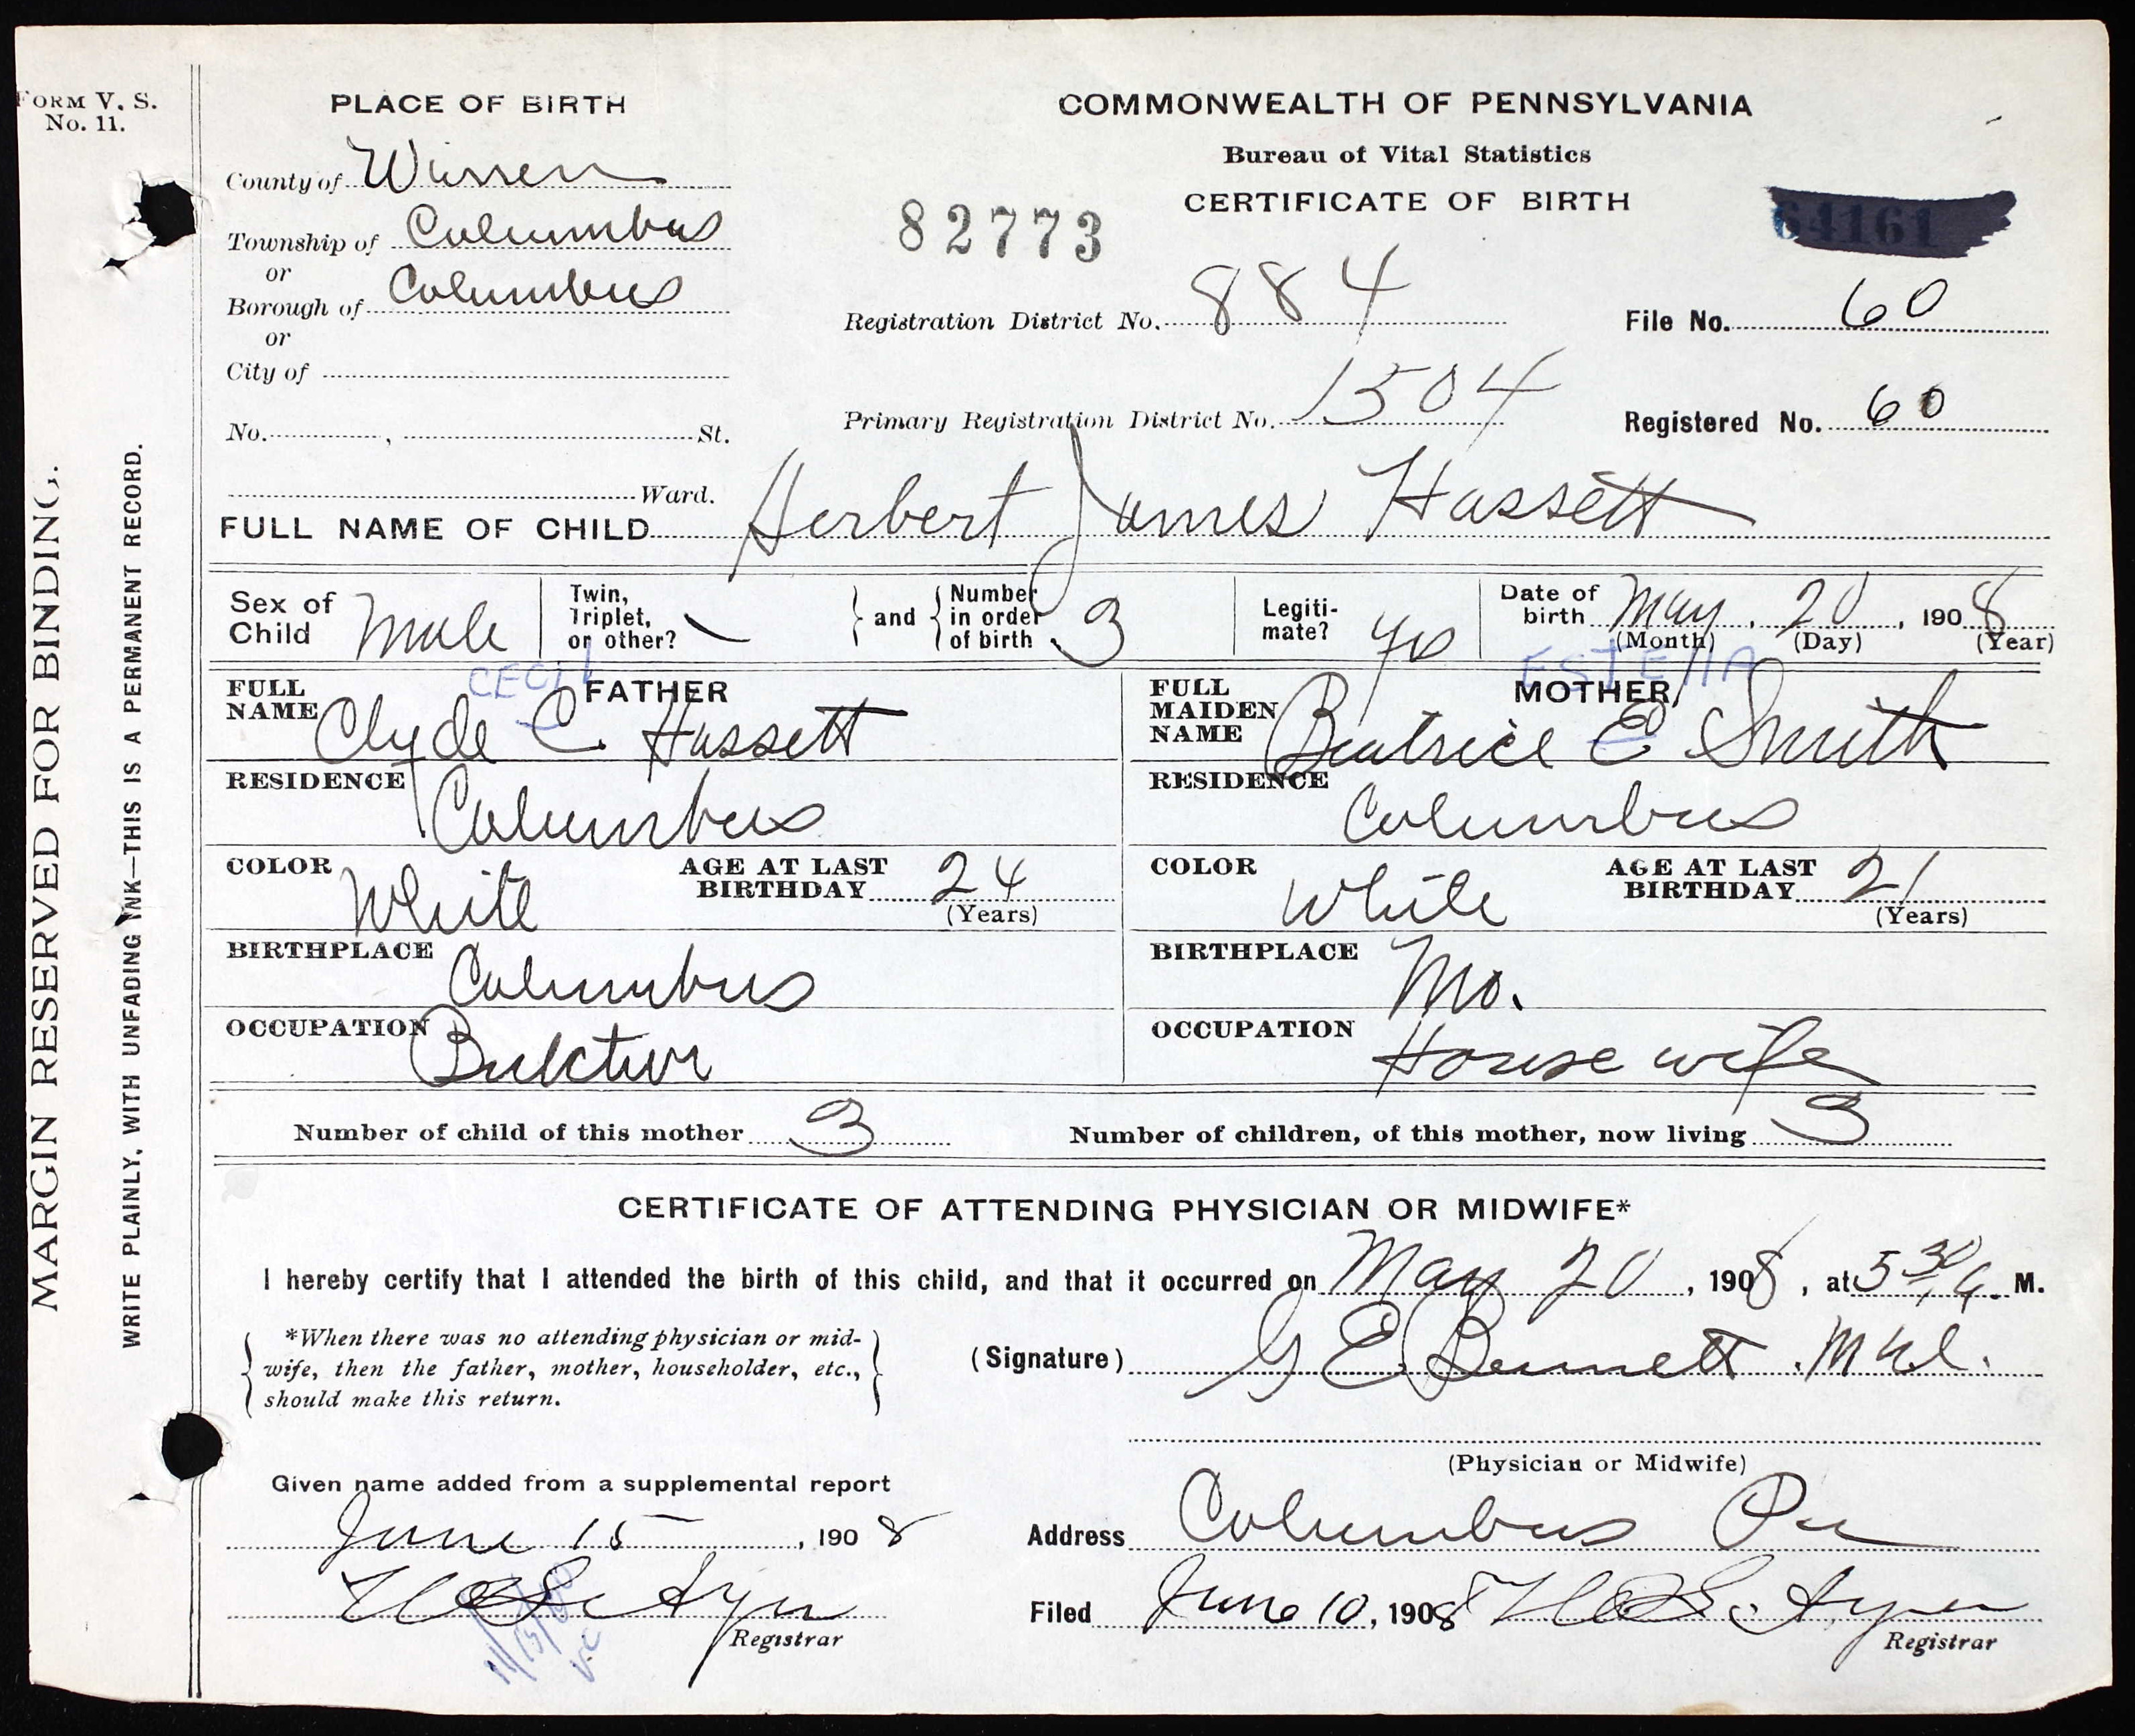 FORM V. S.
No. 11.
MARGIN RESERVED FOR BINDING.
WRITE PLAINLY, WITH UNFADING INK—THIS IS A PERMANENT RECORD.
PLACE OF BIRTH
County of Warren
Township of Columbus
or
Borough of Columbus
or
City of
No. , St.
Ward.
COMMONWEALTH OF PENNSYLVANIA
Bureau of Vital Statistics
CERTIFICATE OF BIRTH
82773
64161
Registration District No. 884
File No. 60
Primary Registration District No. 1504
Registered No. 60
FULL NAME OF CHILD Herbert James Hassett
Sex of Child Male
Twin, Triplet, or other? \
and
Number in order of birth 3
Legitimate? yes
Date of birth May 20, 1908
(Month) (Day) (Year)
CECIL
FATHER
FULL NAME Clyde C. Hassett
RESIDENCE Columbus
COLOR White
AGE AT LAST BIRTHDAY 24
(Years)
BIRTHPLACE Columbus
OCCUPATION
ESTELLA
MOTHER
FULL MAIDEN NAME Beatrice E Smith
RESIDENCE Columbus
COLOR White
AGE AT LAST BIRTHDAY 21
(Years)
BIRTHPLACE Mo.
OCCUPATION House wife
Number of child of this mother 3
Number of children, of this mother, now living 3
CERTIFICATE OF ATTENDING PHYSICIAN OR MIDWIFE*
I hereby certify that I attended the birth of this child, and that it occurred on May 20, 1908, at 5 30 A. M.
*When there was no attending physician or mid-
wife, then the father, mother, householder, etc.,
should make this return.
(Signature) G E. Bennett
(Physician or Midwife)
Given name added from a supplemental report
June 15, 1908
Registrar
11/15/60
Address Columbus Pa
Filed June 10, 1908
Registrar